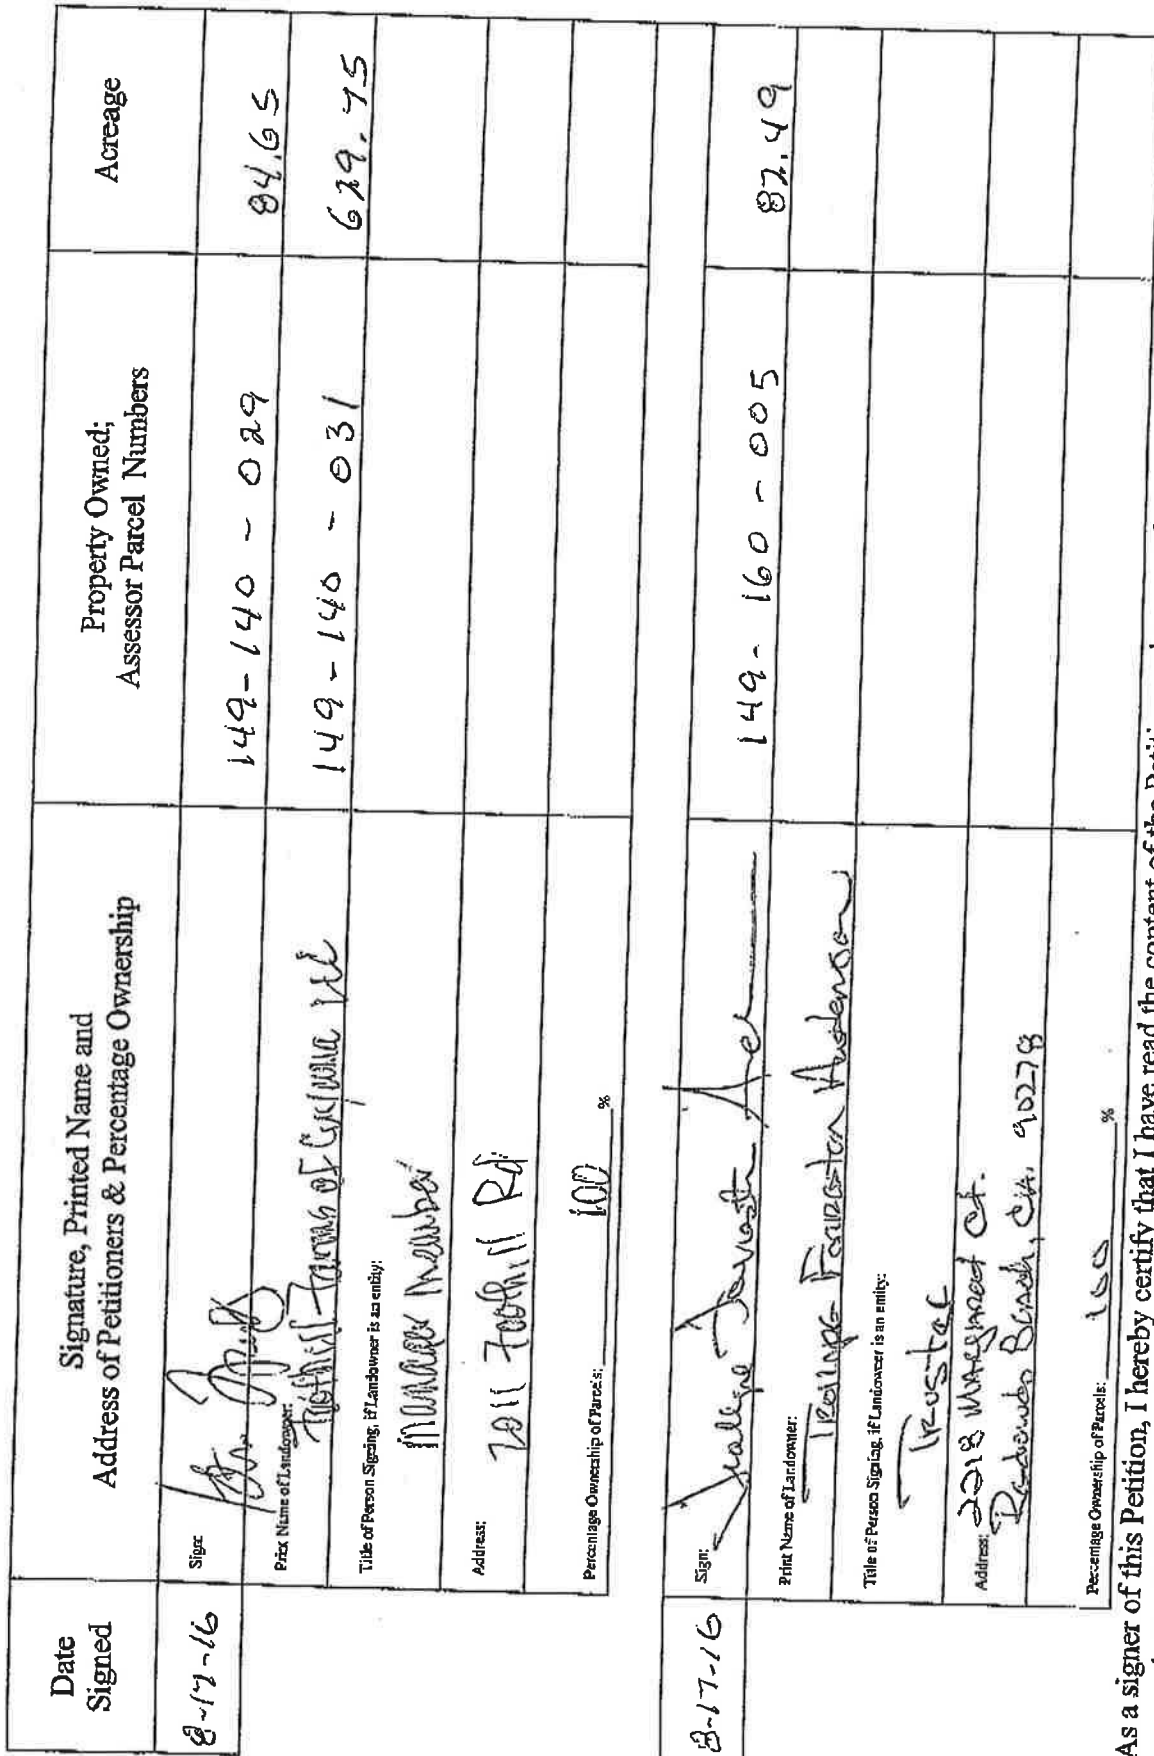 Date
Signed
Signature, Printed Name and
Address of Petitioners & Percentage Ownership
Property Owned;
Assessor Parcel Numbers
Acreage
8-17-16
Sign:
149-140-029
84.65
Print Name of Landowner:
Foothill Farms of
149-140-031
629.75
Title of Person Signing, if Landowner is an entity:
manager member
Address:
7011 Foothill Rd
Percentage Ownership of Parcels: 100 %
8-17-16
Sign:
149-160-005
82.49
Print Name of Landowner:
Title of Person Signing, if Landowner is an entity:
Trustee
Address: 2218 Margaret Ct.
Redondo Beach, CA. 90278
Percentage Ownership of Parcels: 100 %
As a signer of this Petition, I hereby certify that I have read the content of the Petition